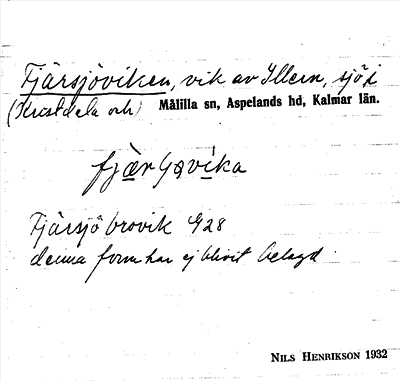 Fjärsjöviken, vik av Illern, sjö i
(Kristdala och) Målilla sn, Aspelands hd, Kalmar län.
Fjärsjö brovik 928
denna form har ej blivit belagd.
NILS HENRIKSON 1932